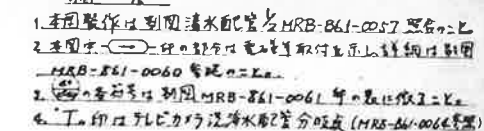 1. 本図製作は別図清水配管1/2 MRB-861-0057 照合のこと
2. 本図中 印の部分は 等取付を示し詳細は別図
MRB-861-0060 参照のこと。
3. の番号は別図 MRB-861-0061 の表に依ること。
4. T。印はテレビカメラ洗滌水配管分岐点 (MRB-861-0064参照)